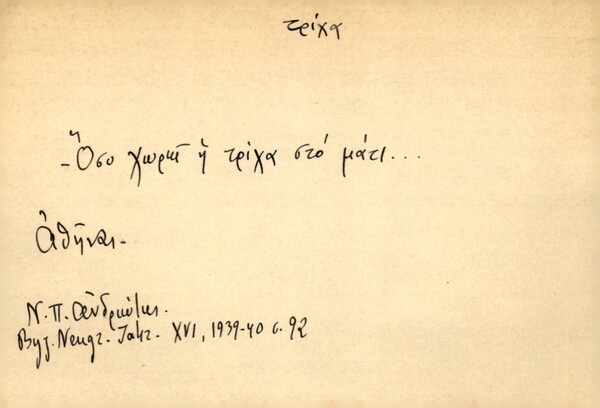 τρίχα
- Ὅσο χωρεῖ ἡ τρίχα στό μάτι...
Ἀθῆναι.
Ν. Π. Ἀνδριώτης.
Βυζ. Νεugr. Jahr. XVI, 1939-40 σ. 92